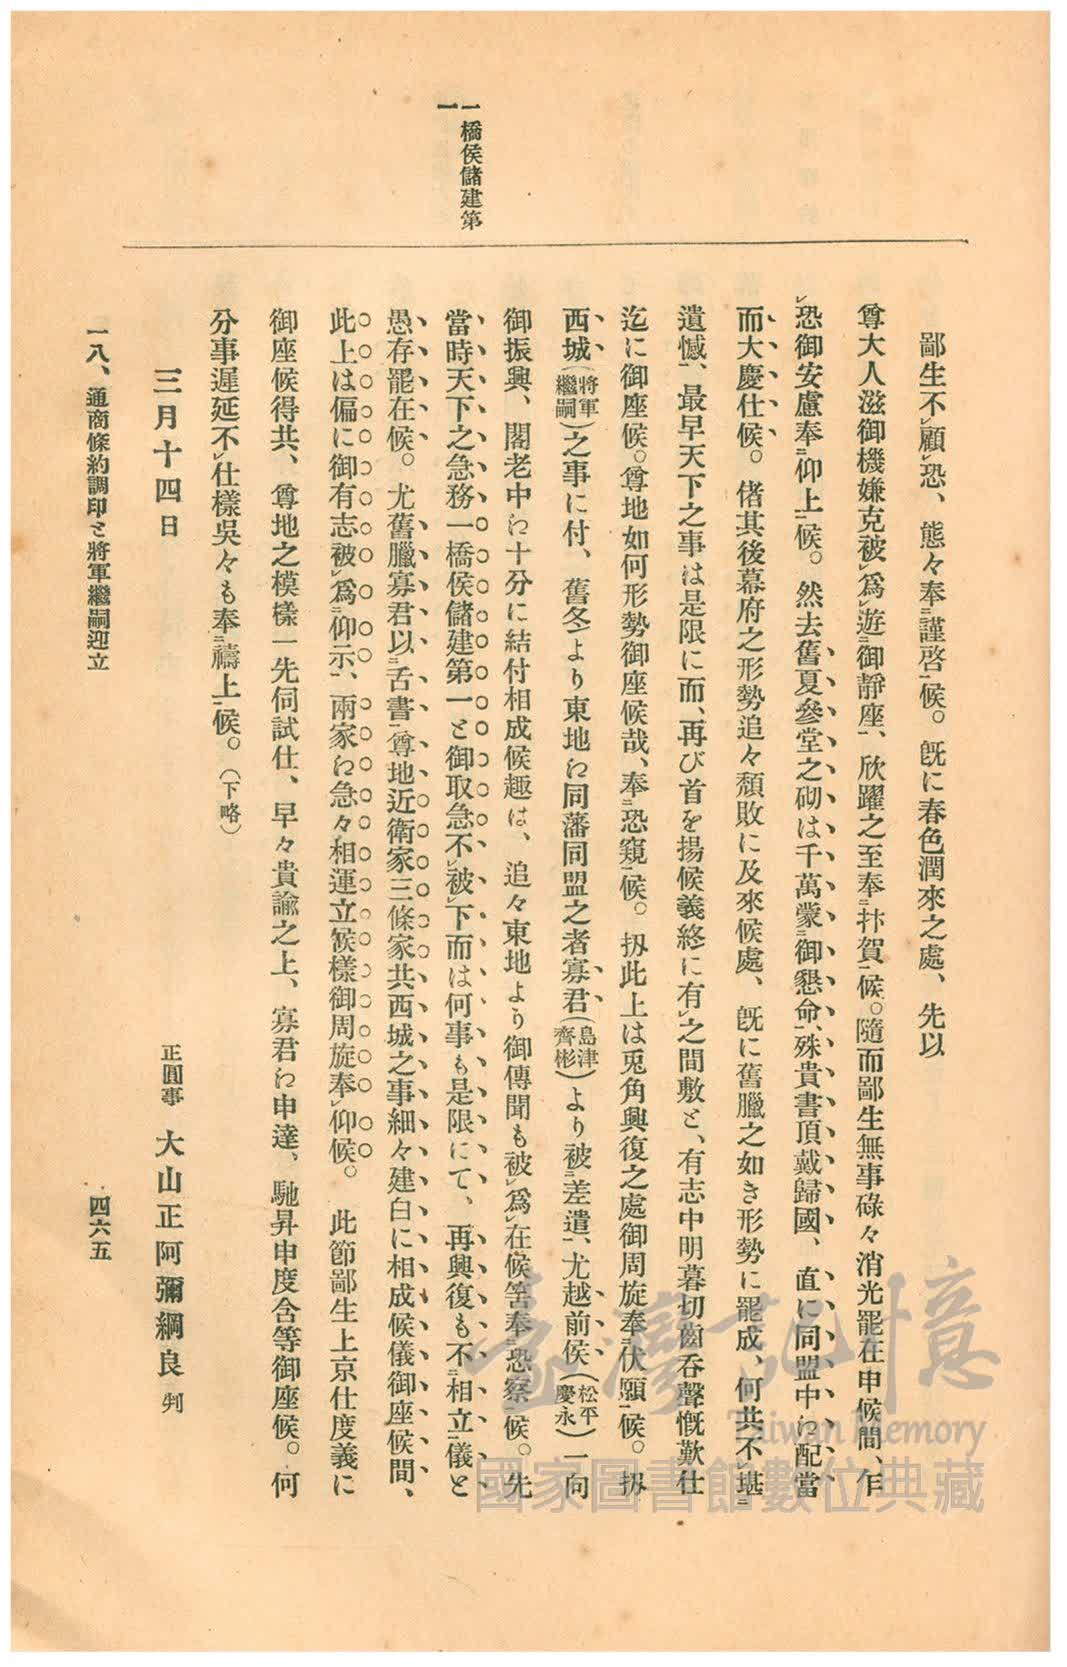 一橋侯儲建第
一
鄙生不ㇾ顧ㇾ恐、態々奉二謹啓一候。既に春色潤來之處、先以
尊大人滋御機嫌克被ㇾ爲ㇾ遊二御靜座一、欣躍之至奉二抃賀一候。隨而鄙生無事碌々消光罷在申候間、乍
ㇾ恐御安慮奉二仰上一候。然去舊夏參堂之砌は千萬蒙二御懇命一、殊貴書頂戴歸國、直に同盟中ゎ配當
而大慶仕候。偖其後幕府之形勢追々頽敗に及來候處、既に舊臘之如き形勢に罷成、何共不ㇾ堪二
遺憾一、最早天下之事は是限に而、再び首を揚候義終に有ㇾ之間敷と、有志中明暮切齒呑聲慨歎仕
迄に御座候。尊地如何形勢御座候哉、奉二恐窺一候。扨此上は兎角興復之處御周旋奉二伏願一候。扨
西城(將軍繼嗣)之事に付、舊冬より東地ゎ同藩同盟之者寡君(島津齊彬)より被二差遣一、尤越前侯(松平慶永)一向
御振興、閣老中ゎ十分に結付相成候趣は、追々東地より御傳聞も被ㇾ爲ㇾ在候筈奉二恐察一候。先
當時天下之急務一橋侯儲建第一と御取急不ㇾ被ㇾ下而は何事も是限にて、再興復も不二相立一儀と
愚存罷在候。尤舊臘寡君以二舌書一尊地近衞家三條家共西城之事細々建白に相成候儀御座候間、
此上は偏に御有志被ㇾ爲二仰示一、兩家ゎ急々相運立候樣御周旋奉ㇾ仰候。此節鄙生上京仕度義に
御座候得共、尊地之模樣一先伺試仕、早々貴諭之上、寡君ゎ申達、馳昇申度含等御座候。何
分事遲延不ㇾ仕樣吳々も奉二禱上一候。(下略)
三月十四日
正圓事 大山正阿彌綱良 判
一八、通商條約調印と將軍繼嗣迎立
四六五
臺灣記憶
Taiwan Memory
國家圖書館數位典藏